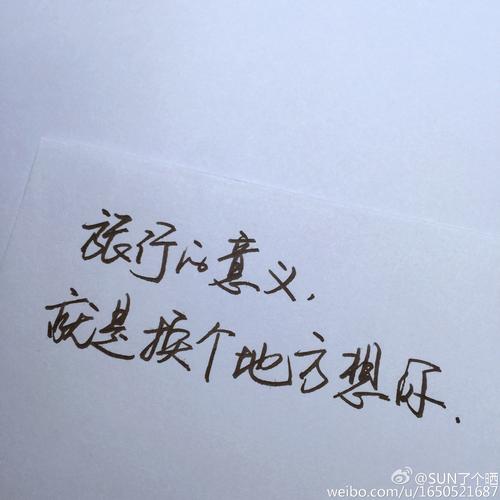 旅行的意义，
就是换个地方想你.
@SUN了个晒
weibo.com/u/1650521687